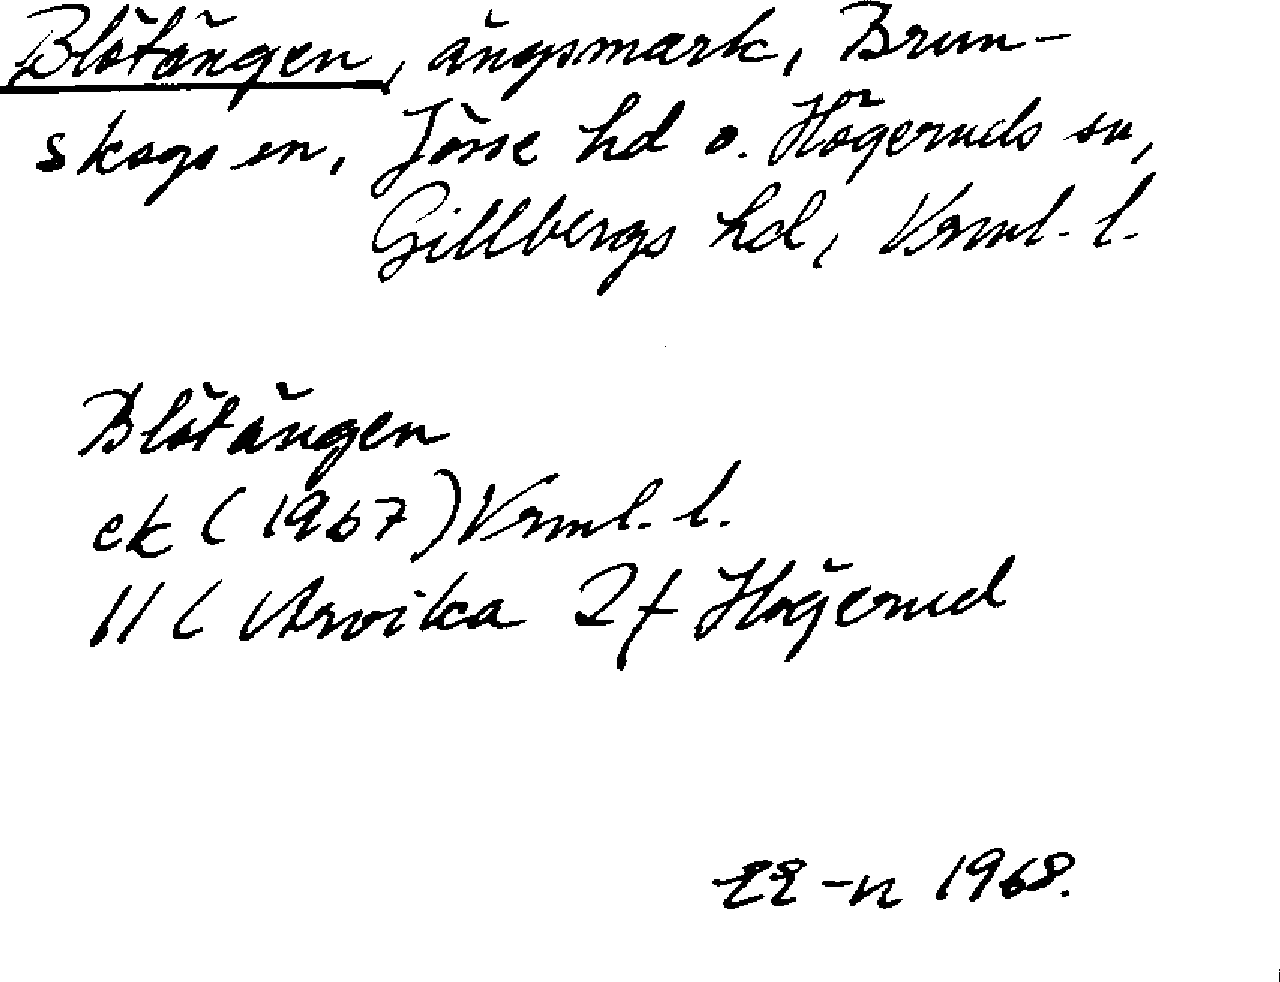 Blötängen, ängsmark, Brun-
skogs sn, Jösse hd o. Högeruds sn,
Gillbergs hd, Vrml. l.
Blötängen
ek (1967) Vrml. l.
11 C Arvika 2f Högerud
1968.